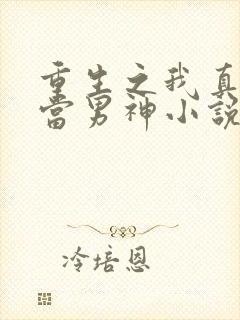 重生之我真
当男神小说
冷培恩